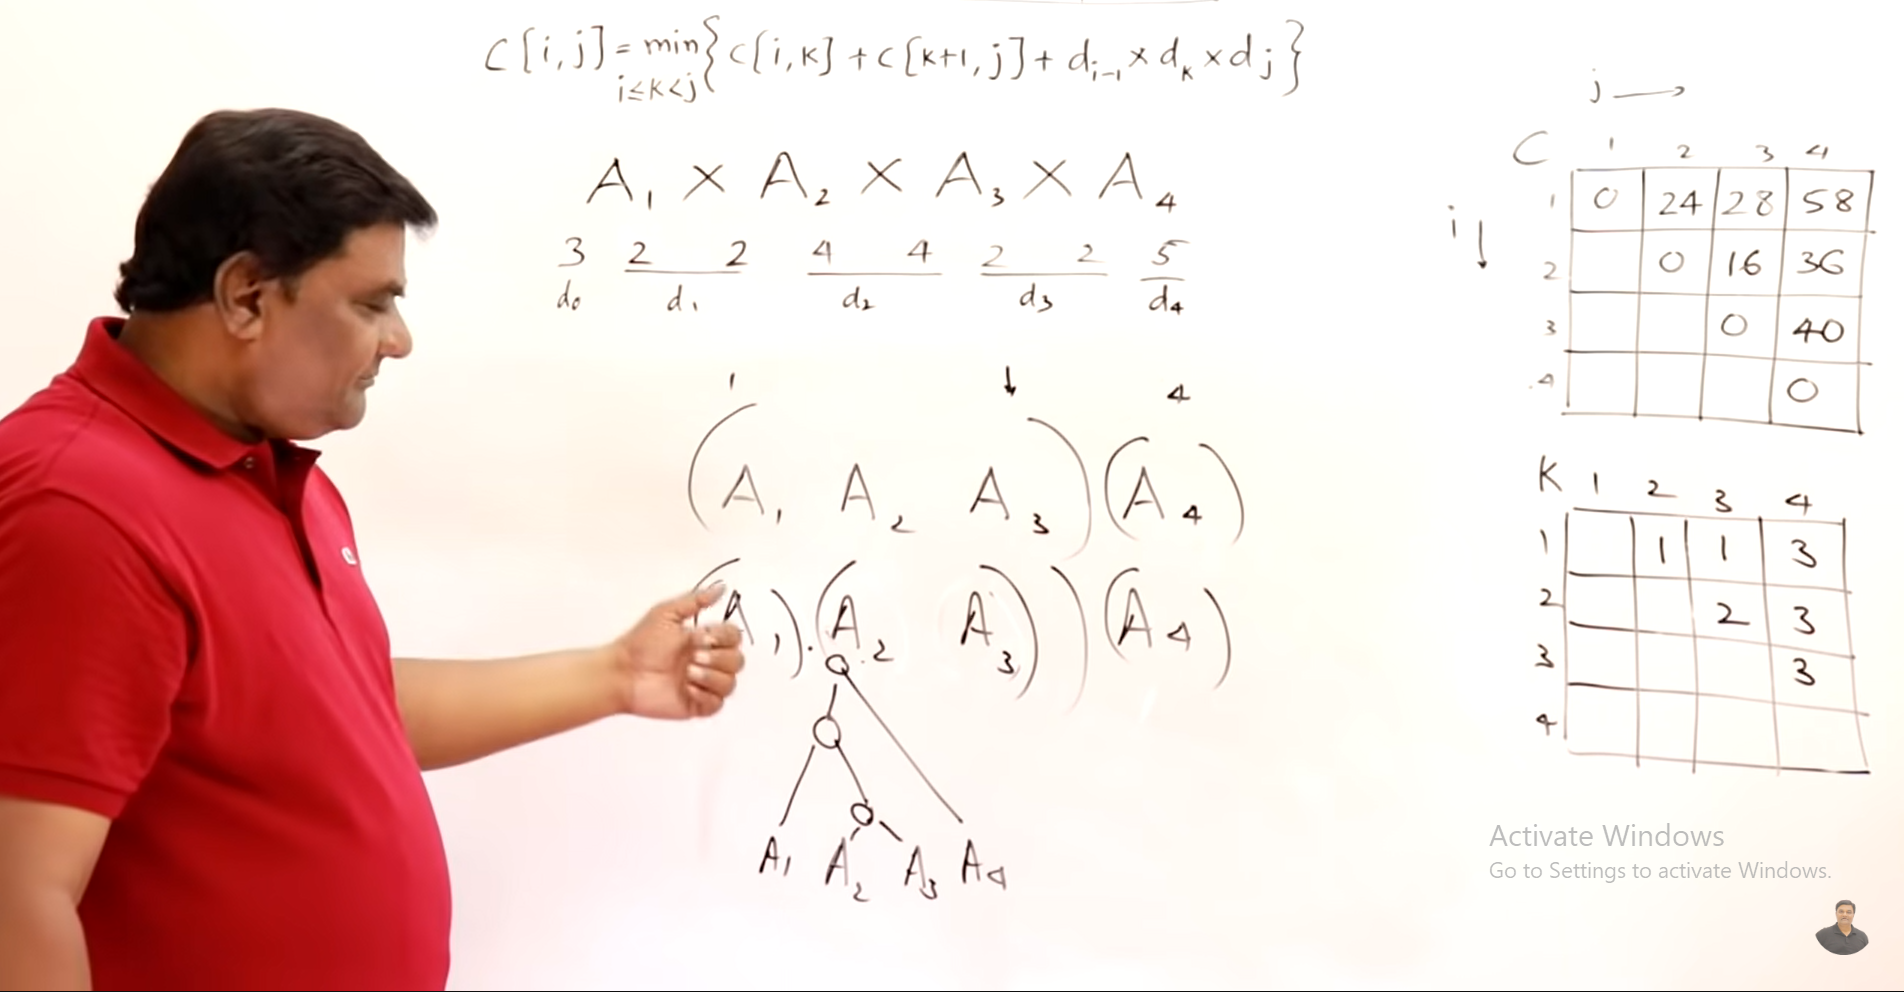 C[i,j] = min { C[i,k] + C[k+1,j] + dᵢ₋₁ × dₖ × dⱼ }
i≤k<j
A₁ × A₂ × A₃ × A₄
3 2 2 4 4 2 2 5
d₀ d₁ d₂ d₃ d₄
1 ↓ 4
(A₁ A₂ A₃)(A₄)
((A₁).(A₂ A₃))(A₄)
A₁ A₂ A₃ A₄
j →
C 1 2 3 4
i ↓
1 0 24 28 58
2 0 16 36
3 0 40
4 0
K 1 2 3 4
1 1 1 3
2 2 3
3 3
4
Activate Windows
Go to Settings to activate Windows.